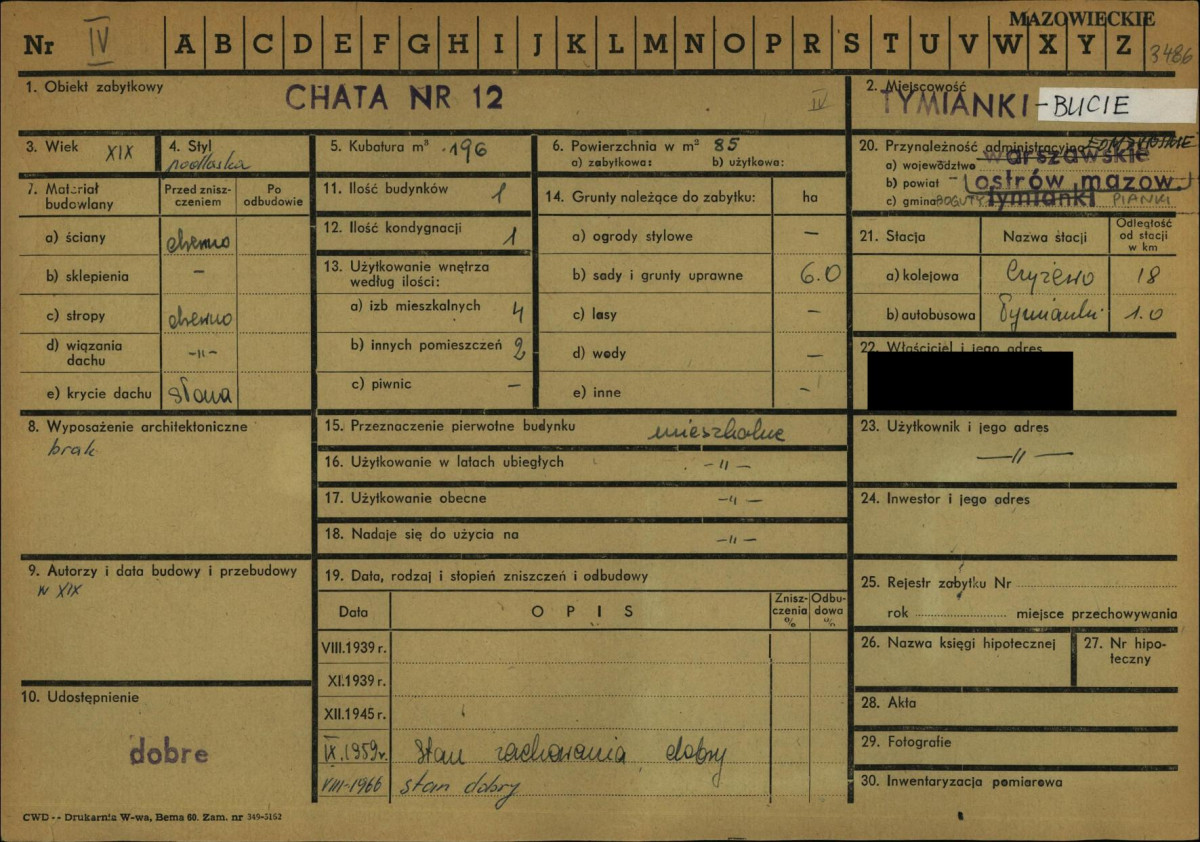 MAZOWIECKIE
Nr IV A B C D E F G H I J K L M N O P R S T U V W X Y Z 3486
1. Obiekt zabytkowy
CHATA NR 12
IV
2. Miejscowość
TYMIANKI-BUCIE
3. Wiek XIX
4. Styl
podlaska
5. Kubatura m³ 196
6. Powierzchnia w m² 85
a) zabytkowa: b) użytkowa:
20. Przynależność administracyjna ŁOMŻYŃSKIE
a) województwo warszawskie
b) powiat - (ostrów mazow.)
c) gmina BOGUTY tymianki PIANKI
7. Materiał budowlany
Przed zniszczeniem
Po odbudowie
a) ściany drewno
b) sklepienia –
c) stropy drewno
d) wiązania dachu -„-
e) krycie dachu słoma
11. Ilość budynków 1
12. Ilość kondygnacji 1
13. Użytkowanie wnętrza
według ilości:
a) izb mieszkalnych 4
b) innych pomieszczeń 2
c) piwnic –
14. Grunty należące do zabytku: ha
a) ogrody stylowe –
b) sady i grunty uprawne 6.0
c) lasy –
d) wody –
e) inne –
21. Stacja
Nazwa stacji
Odległość od stacji w km
a) kolejowa Czyżewo 18
b) autobusowa Tymianki 1.0
22. Właściciel i jego adres
8. Wyposażenie architektoniczne
brak
15. Przeznaczenie pierwotne budynku mieszkalne
16. Użytkowanie w latach ubiegłych -„-
17. Użytkowanie obecne -„-
18. Nadaje się do użycia na -„-
23. Użytkownik i jego adres
-„-
24. Inwestor i jego adres
9. Autorzy i data budowy i przebudowy
w XIX
19. Data, rodzaj i stopień zniszczeń i odbudowy
Data
OPIS
Zniszczenia %
Odbudowa %
VIII.1939 r.
XI.1939 r.
XII.1945 r.
IX.1959 r. Stan zachowania dobry
VIII-1966 stan dobry
25. Rejestr zabytku Nr
rok miejsce przechowywania
26. Nazwa księgi hipotecznej
27. Nr hipoteczny
28. Akta
29. Fotografie
30. Inwentaryzacja pomiarowa
10. Udostępnienie
dobre
CWD -- Drukarnia W-wa, Bema 60. Zam. nr 349-5162